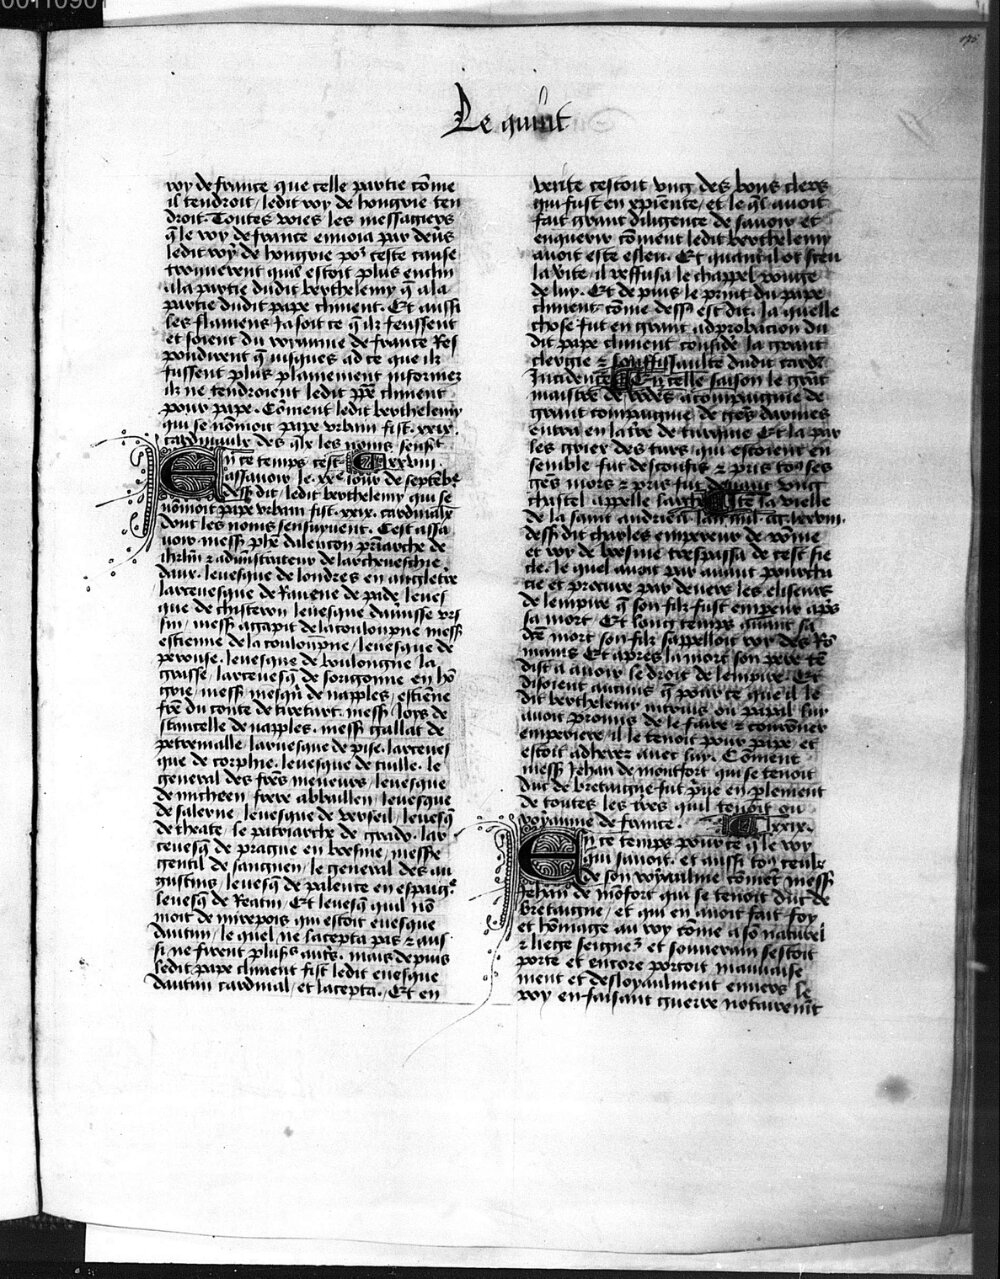 00110901
175
Le quint
roy de france que celle partie cōme
il tendroit / ledit roy de hongrie ten
droit. Toutes voies les messagiers
q̄ le roy de france envoia par deūs
ledit roy de hongrie poʳ ceste cause
trouverent quil estoit plus enclin
a la partie dudit berthelemy q̄ a la
partie dudit pape clment. Et aussi
les flamens Jasoit ce q̄ ilz feussent
et soient du royaume de france Res
pondirent q̄ jusques ad ce que ilz
fussent plus plainement informez
ilz ne tendroient ledit ppē clment
pour pape. Cōment ledit berthelemy
qui se nōmoit pape urbain fist .xxix.
cardinaulx des qlz les noms sensʳ
En ce temps cest lxxviii
assavoir le xxᵉ jour de septēbʳ
dess dit / ledit berthelemy qui se
nōmoit pape urbain fist .xxix. cardinalx
dont les noms sensuyuent. Cest assa
uoir mess phē dalencon priarche de
ihrlm̄ ⁊ administrateur de larcheueschie
daux. leuesque de londres en angletrē
larceuesque de Rauene de pade / leues
que de cisteron leuesque damisse urs
sin / mess agapit de la coulompne mess
estienne de la couloupne / leuesque de
perouse. leuesque de boulongne la
grasse / larceuesq̄ de sorigonne en hō
grie / mess mesqū de napples / estiēne
frē du conte de
stancelle de napples. mess gallat de
petremalle larceuesque de pise. larceues
que de corphie. leuesque de tulle. le
general des frēs meneurs / leuesque
de micheen frere
de salerne / leuesque de verseil / leuesq̄
de theate / le patriarche de grado. lar
ceuesq̄ de prague en boesme / messe
gentil de sangnen / le general des au
gustins / leuesq̄ de palence en espaigᵉ
leuesq̄ de Reatin / Et leuesq̄ quil nō
moit de mirepois qui estoit euesque
dautun / le quel ne lacepta pas ⁊ aus
si ne firent plusʳs autʳs. mais depuis
ledit pape clment fist ledit euesque
dautun cardinal / et lacepta. Et en
verite cestoit ung des bons clers
qui fust en xpiente / et le ql auoit
fait grant diligence de sauoir et
enquerir cōment ledit berthelemy
auoit este esleu. Et quant il ot sceu
la vite / il reffusa le chappel rouge
de luy. Et depuis le print du pape
clment cōme dess est dit. la quelle
chose fut en grant adprobacion du
dit pape clment conside la grant
clergie ⁊ souffissaulte dudit cardl
Incidence En celle saison le grāt
maistre de rodes acompaignie de
grant compaignie de gēs darmes
entra en la tre de turquie Et la par
les grier des turs qui estoient en
semble fut desconfis ⁊ pris tous ses
gēs mors ⁊ pris fut deuant ung
chastel appelle Ite la vielle
de la saint andrieu lan mil .ccc. lxxviii.
dess dit charles empereur de rōme
et roy de boesme trespassa de cest sie
cle. le quel auoit par auant pourcha
cie et procure par deuers les eliseurs
de lempire q̄ son filz fust empeʳr apʳs
sa mort. Et long temps auant sa
dcē mort son filz sappelloit roy des Rō
mains Et apres la mort son pere ten
dist a auoir le droit de lempire. Et
disoient aucuns q̄ pour ce que il le
dit berthelemy intrus ou papal luy
auoit promis de le faire ⁊ couronner
emperiere il le tenoit pour pape et
estoit adherez auec luy. Cōment
mess Jehan de montfort qui se tenoit
duc de bretaigne fut pʳue en plement
de toutes les tres quil tenoit ou
royaume de france. lxxix.
En ce temps pour ce q̄ le roy
qui sauoit. et aussi tous ceulx
de son royaulme cōmet mess
Jehan de mōfort qui se tenoit duc de
bretaigne / et qui en auoit fait foy
et hōmage au roy cōme a sō naturel
⁊ liege seigneʳ et souuerain sestoit
porte et encore portoit mauuaise
ment et desloyaulment enuers le
roy en faisant guerre notoirenīt